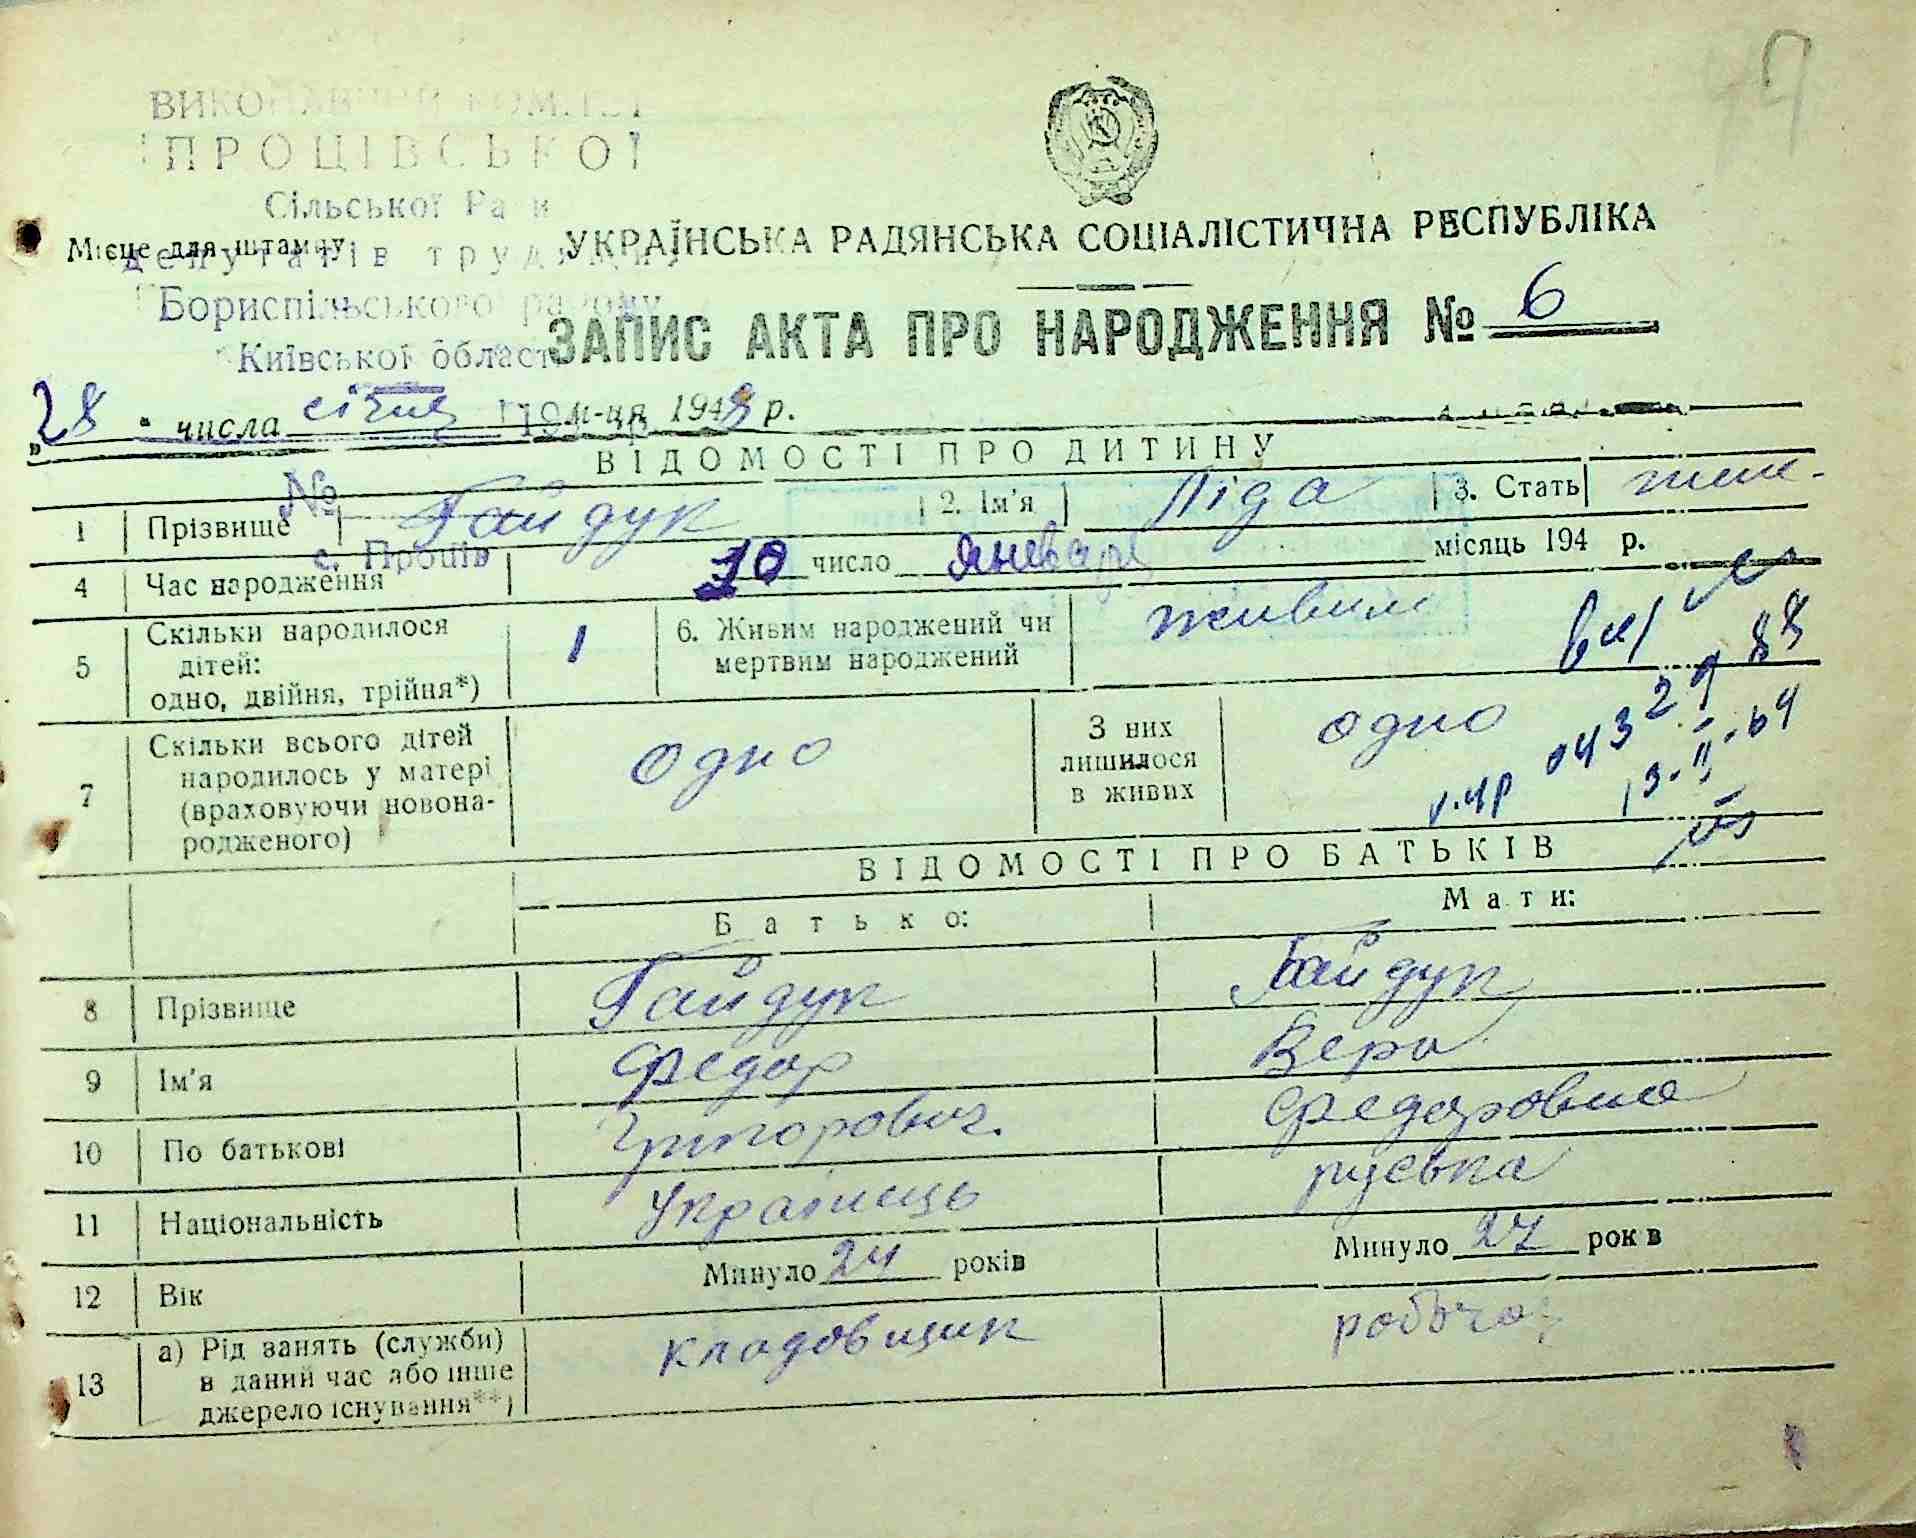 47
ВИКОНАВЧИЙ КОМІТЕТ
ПРОЦІВСЬКОЇ
Сільської Ради
депутатів трудящих
Бориспільського району
Київської області
№
с. Проців
Місце для штампу
УКРАЇНСЬКА РАДЯНСЬКА СОЦІАЛІСТИЧНА РЕСПУБЛІКА
ЗАПИС АКТА ПРО НАРОДЖЕННЯ № 6
„28" числа січня м-ця 1949 р.
ВІДОМОСТІ ПРО ДИТИНУ
1 Прізвище Гайдук 2. Ім'я Ліда 3. Стать жін.
4 Час народження 10 число Январь місяць 194 р.
5 Скільки народилося дітей: одно, двійня, трійня*) 1 6. Живим народжений чи мертвим народжений живим
7 Скільки всього дітей народилось у матері (враховуючи новонародженого) одно З них лишилося в живих одно
043 29 88
13-II-64
ВІДОМОСТІ ПРО БАТЬКІВ
Батько: Мати:
8 Прізвище Гайдук Гайдук
9 Ім'я Федор Вера
10 По батькові Григорович. Федоровна
11 Національність Українець руська
12 Вік Минуло 24 років Минуло 27 років
13 а) Рід занять (служби) в даний час або інше джерело існування**) кладовщик робоча